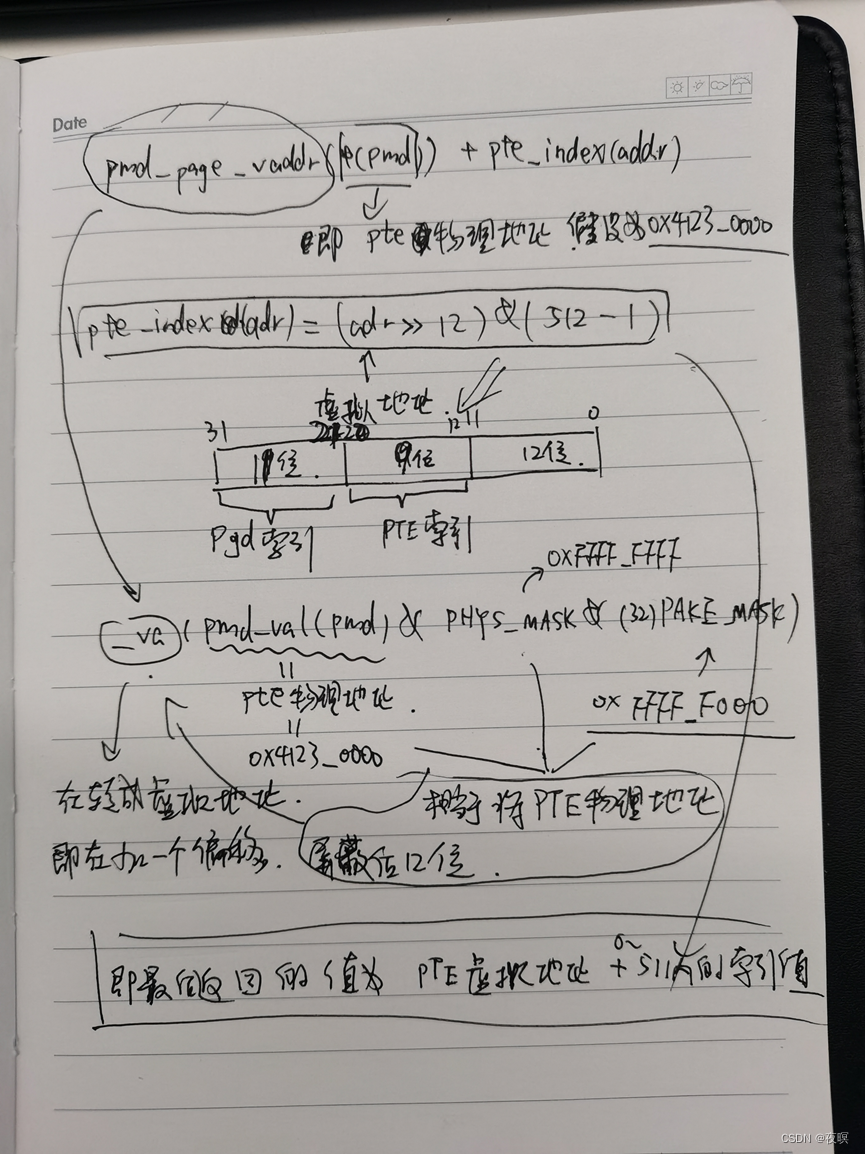 Date
pmd_page_vaddr(*(pmd)) + pte_index(addr)
即 pte 物理地址 假设为0x4123_0000
pte_index(adr) = (adr >> 12) & (512 - 1)
虚拟地址
31 12 11 0
11位 9位 12位
Pgd索引 PTE索引
0xFFFF_FFFF
_va (pmd_val(pmd) & PHYS_MASK & (32)PAKE_MASK)
pte物理地址
0x FFFF_F000
0x4123_0000
在转成虚拟地址.
相当于将PTE物理地址
即在加一个偏移.
屏蔽低12位.
0~
即最后返回的值为 PTE虚拟地址 + 511大的索引值
CSDN @夜暝